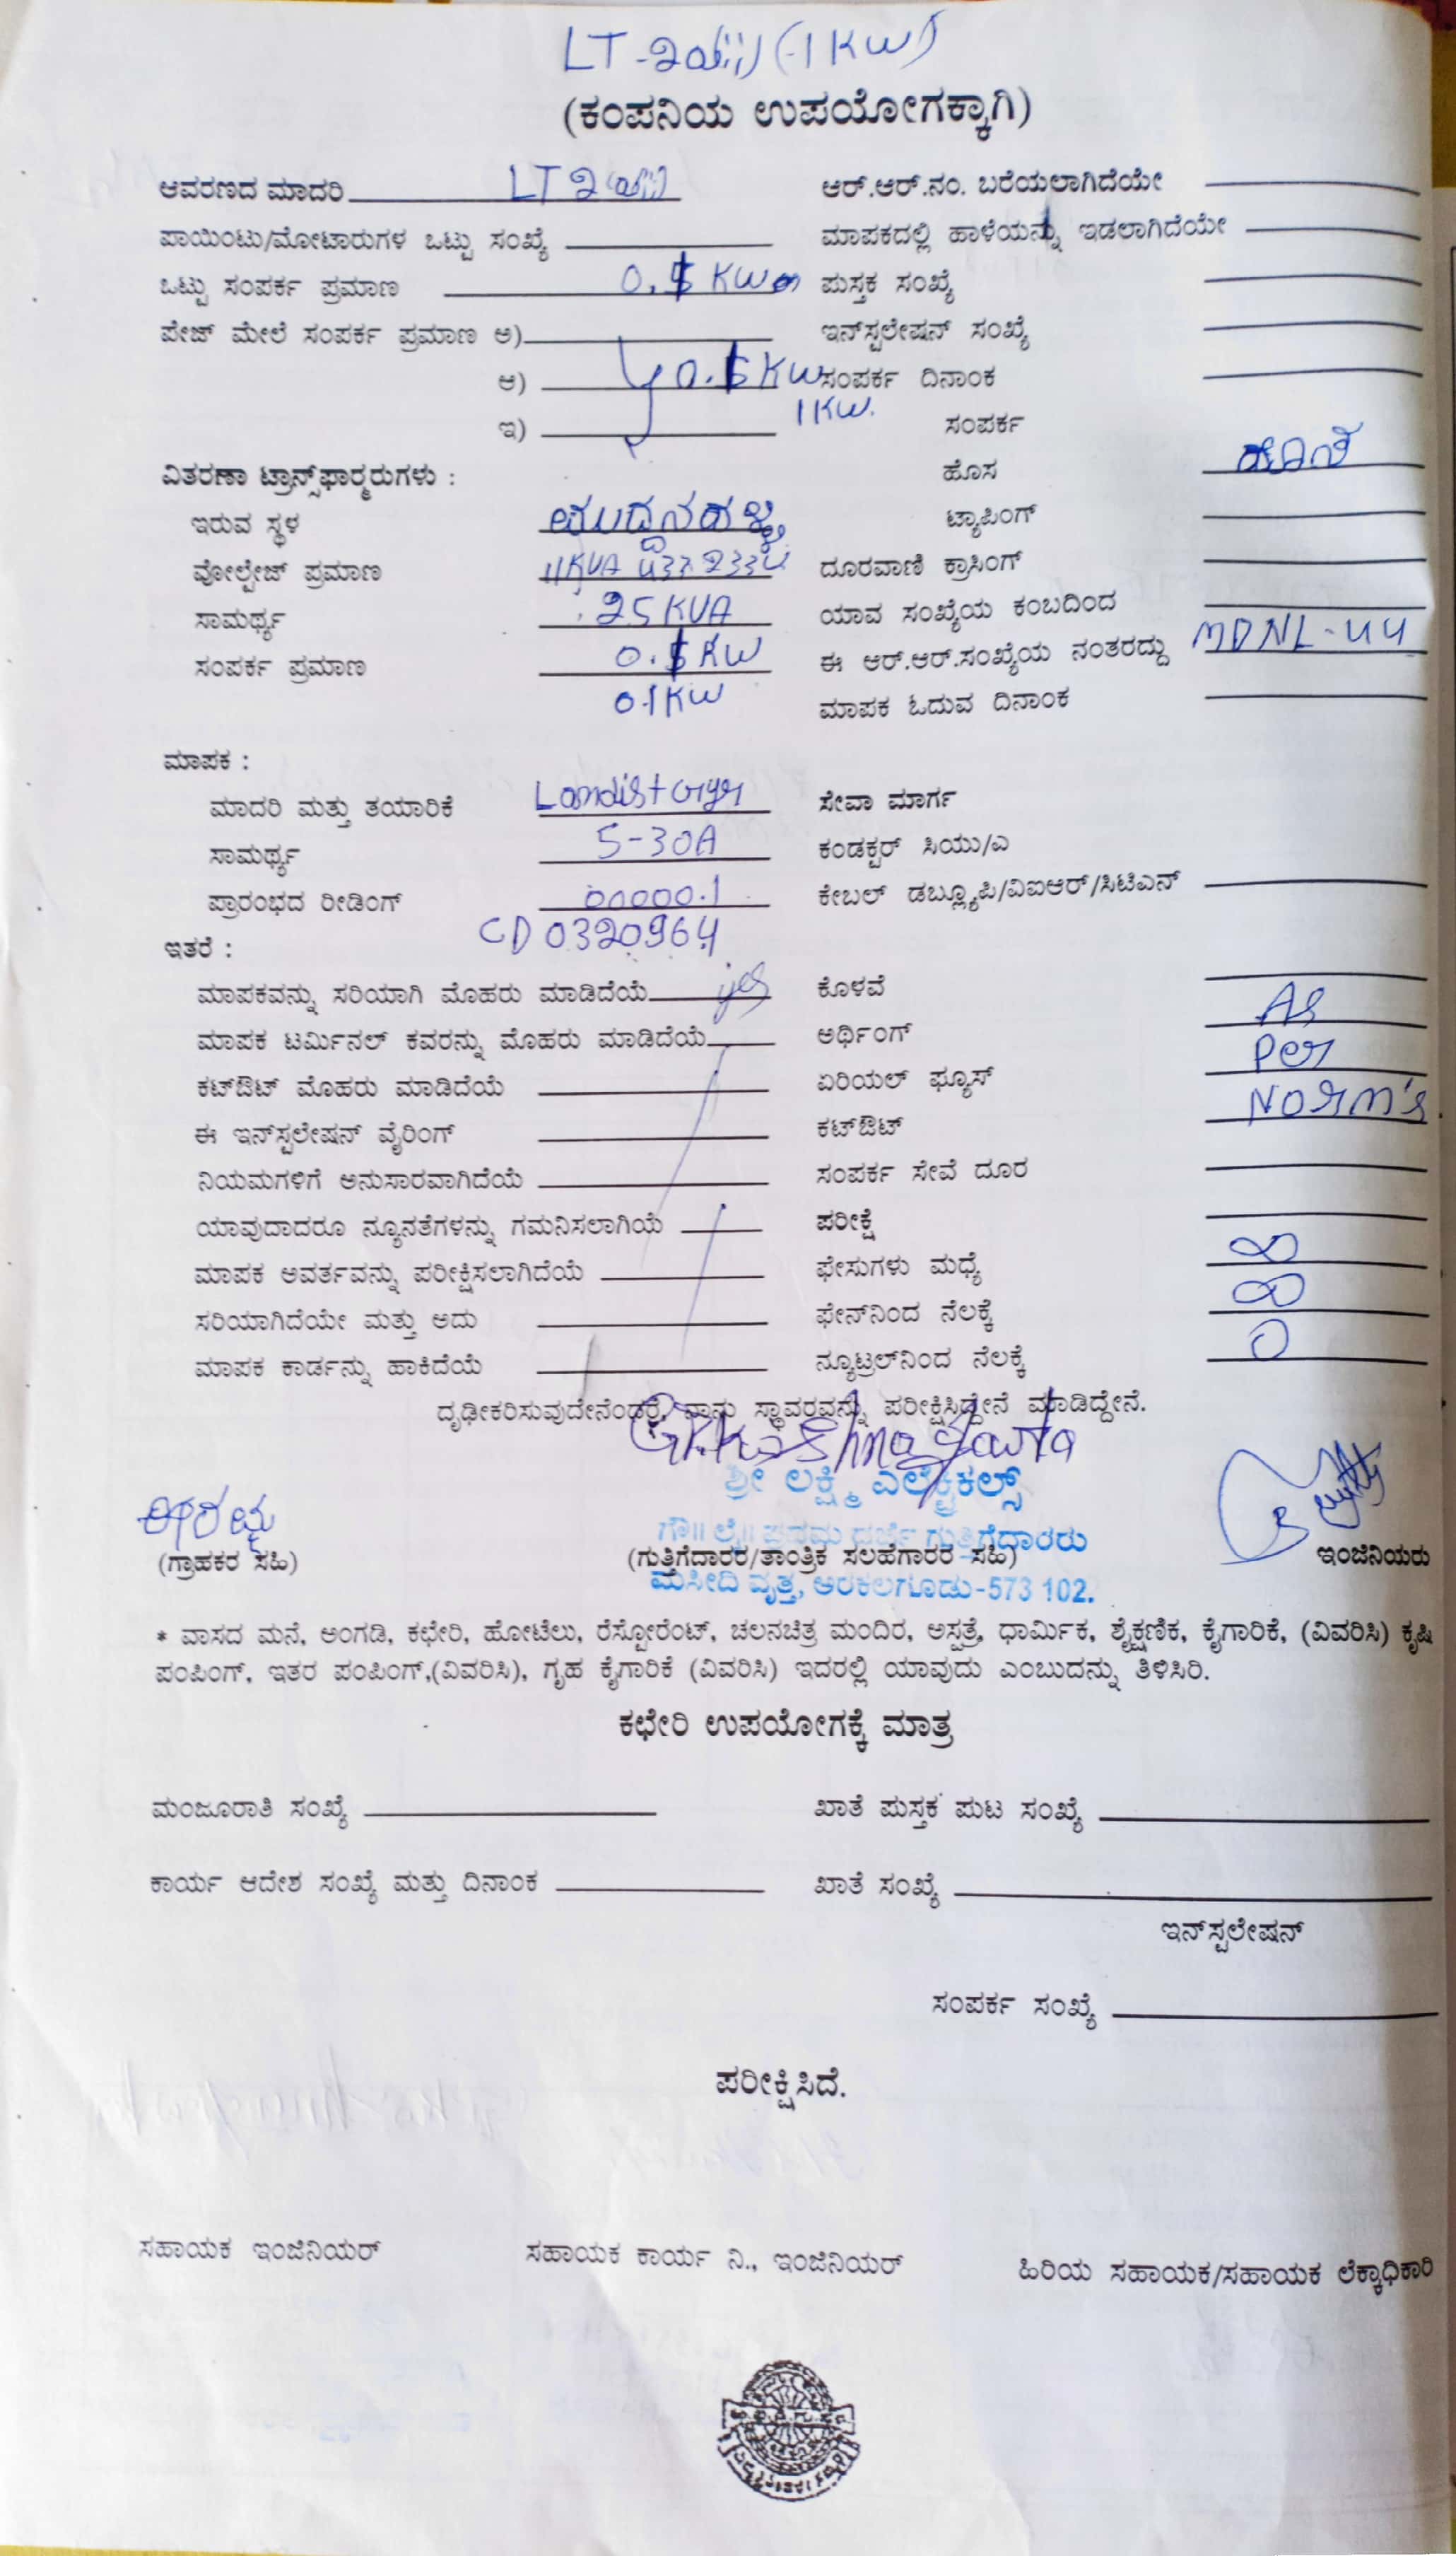 (ಕಂಪನಿಯ ಉಪಯೋಗಕ್ಕಾಗಿ)
ಆವರಣದ ಮಾದರಿ LT 2 ಆರ್.ಆರ್.ನಂ. ಬರೆಯಲಾಗಿದೆಯೇ
ಪಾಯಿಂಟು/ಮೋಟಾರುಗಳ ಒಟ್ಟು ಸಂಖ್ಯೆ ಮಾಪಕದಲ್ಲಿ ಹಾಳೆಯನ್ನು ಇಡಲಾಗಿದೆಯೇ
ಒಟ್ಟು ಸಂಪರ್ಕ ಪ್ರಮಾಣ ಪುಸ್ತಕ ಸಂಖ್ಯೆ
ಪೇಜ್ ಮೇಲೆ ಸಂಪರ್ಕ ಪ್ರಮಾಣ ಅ) ಇನ್‌ಸ್ಟಲೇಷನ್ ಸಂಖ್ಯೆ
ಆ) ಸಂಪರ್ಕ ದಿನಾಂಕ
1KW.
ಇ) ಸಂಪರ್ಕ
ವಿತರಣಾ ಟ್ರಾನ್ಸ್‌ಫಾರ್ಮರುಗಳು : ಹೊಸ
ಇರುವ ಸ್ಥಳ ಮುದ್ದನಹಳ್ಳಿ ಟ್ಯಾಪಿಂಗ್
ವೋಲ್ಟೇಜ್ ಪ್ರಮಾಣ 11KVA ದೂರವಾಣಿ ಕ್ರಾಸಿಂಗ್
ಸಾಮರ್ಥ್ಯ 25 KVA ಯಾವ ಸಂಖ್ಯೆಯ ಕಂಬದಿಂದ
ಸಂಪರ್ಕ ಪ್ರಮಾಣ ಈ ಆರ್.ಆರ್.ಸಂಖ್ಯೆಯ ನಂತರದ್ದು MDNL-44
0.1KW ಮಾಪಕ ಓದುವ ದಿನಾಂಕ
ಮಾಪಕ :
ಮಾದರಿ ಮತ್ತು ತಯಾರಿಕೆ ಸೇವಾ ಮಾರ್ಗ
ಸಾಮರ್ಥ್ಯ 5-30A ಕಂಡಕ್ಟರ್ ಸಿಯು/ಎ
ಪ್ರಾರಂಭದ ರೀಡಿಂಗ್ 00000.1 ಕೇಬಲ್ ಡಬ್ಲ್ಯೂಪಿ/ವಿಐಆರ್/ಸಿಟಿಎನ್
ಇತರೆ : CD 0320964
ಮಾಪಕವನ್ನು ಸರಿಯಾಗಿ ಮೊಹರು ಮಾಡಿದೆಯೆ yes ಕೊಳವೆ
ಮಾಪಕ ಟರ್ಮಿನಲ್ ಕವರನ್ನು ಮೊಹರು ಮಾಡಿದೆಯೆ ಅರ್ಥಿಂಗ್ As
ಕಟ್‌ಔಟ್ ಮೊಹರು ಮಾಡಿದೆಯೆ ಏರಿಯಲ್ ಫ್ಯೂಸ್ Per
ಈ ಇನ್‌ಸ್ಟಲೇಷನ್ ವೈರಿಂಗ್ ಕಟ್‌ಔಟ್ Norm's
ನಿಯಮಗಳಿಗೆ ಅನುಸಾರವಾಗಿದೆಯೆ ಸಂಪರ್ಕ ಸೇವೆ ದೂರ
ಯಾವುದಾದರೂ ನ್ಯೂನತೆಗಳನ್ನು ಗಮನಿಸಲಾಗಿಯೆ ಪರೀಕ್ಷೆ
ಮಾಪಕ ಅವರ್ತವನ್ನು ಪರೀಕ್ಷಿಸಲಾಗಿದೆಯೆ ಫೇಸುಗಳು ಮಧ್ಯೆ ∞
ಸರಿಯಾಗಿದೆಯೇ ಮತ್ತು ಅದು ಫೇನ್‌ನಿಂದ ನೆಲಕ್ಕೆ ∞
ಮಾಪಕ ಕಾರ್ಡನ್ನು ಹಾಕಿದೆಯೆ ನ್ಯೂಟ್ರಲ್‌ನಿಂದ ನೆಲಕ್ಕೆ 0
ದೃಢೀಕರಿಸುವುದೇನೆಂದರೆ, ನಾನು ಸ್ಥಾವರವನ್ನು ಪರೀಕ್ಷಿಸಿದ್ದೇನೆ ಮಾಡಿದ್ದೇನೆ.
ಶ್ರೀ ಲಕ್ಷ್ಮಿ ಎಲೆಕ್ಟ್ರಿಕಲ್ಸ್
ಗೌ|| ಲೈ|| ಪ್ರಥಮ ದರ್ಜೆ ಗುತ್ತಿಗೆದಾರರು
(ಗ್ರಾಹಕರ ಸಹಿ) (ಗುತ್ತಿಗೆದಾರರ/ತಾಂತ್ರಿಕ ಸಲಹೆಗಾರರ ಸಹಿ) ಇಂಜಿನಿಯರು
ಮಸೀದಿ ವೃತ್ತ, ಅರಕಲಗೂಡು-573 102.
* ವಾಸದ ಮನೆ, ಅಂಗಡಿ, ಕಛೇರಿ, ಹೋಟೆಲು, ರೆಸ್ಟೋರೆಂಟ್, ಚಲನಚಿತ್ರ ಮಂದಿರ, ಅಸ್ಪತ್ರೆ, ಧಾರ್ಮಿಕ, ಶೈಕ್ಷಣಿಕ, ಕೈಗಾರಿಕೆ, (ವಿವರಿಸಿ) ಕೃಷಿ
ಪಂಪಿಂಗ್, ಇತರ ಪಂಪಿಂಗ್,(ವಿವರಿಸಿ), ಗೃಹ ಕೈಗಾರಿಕೆ (ವಿವರಿಸಿ) ಇದರಲ್ಲಿ ಯಾವುದು ಎಂಬುದನ್ನು ತಿಳಿಸಿರಿ.
ಕಛೇರಿ ಉಪಯೋಗಕ್ಕೆ ಮಾತ್ರ
ಮಂಜೂರಾತಿ ಸಂಖ್ಯೆ ಖಾತೆ ಪುಸ್ತಕ ಪುಟ ಸಂಖ್ಯೆ
ಕಾರ್ಯ ಆದೇಶ ಸಂಖ್ಯೆ ಮತ್ತು ದಿನಾಂಕ ಖಾತೆ ಸಂಖ್ಯೆ
ಇನ್‌ಸ್ಟಲೇಷನ್
ಸಂಪರ್ಕ ಸಂಖ್ಯೆ
ಪರೀಕ್ಷಿಸಿದೆ.
ಸಹಾಯಕ ಇಂಜಿನಿಯರ್ ಸಹಾಯಕ ಕಾರ್ಯ ನಿ., ಇಂಜಿನಿಯರ್ ಹಿರಿಯ ಸಹಾಯಕ/ಸಹಾಯಕ ಲೆಕ್ಕಾಧಿಕಾರಿ